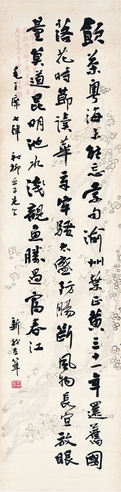 飲茶粵海未能忘索句渝州葉正黃三十一年還舊國
落花時節讀華章牢騷太盛防腸斷風物長宜放眼
量莫道昆明池水淺觀魚勝過富春江
毛主席七律 和柳亞子先生
新我左筆